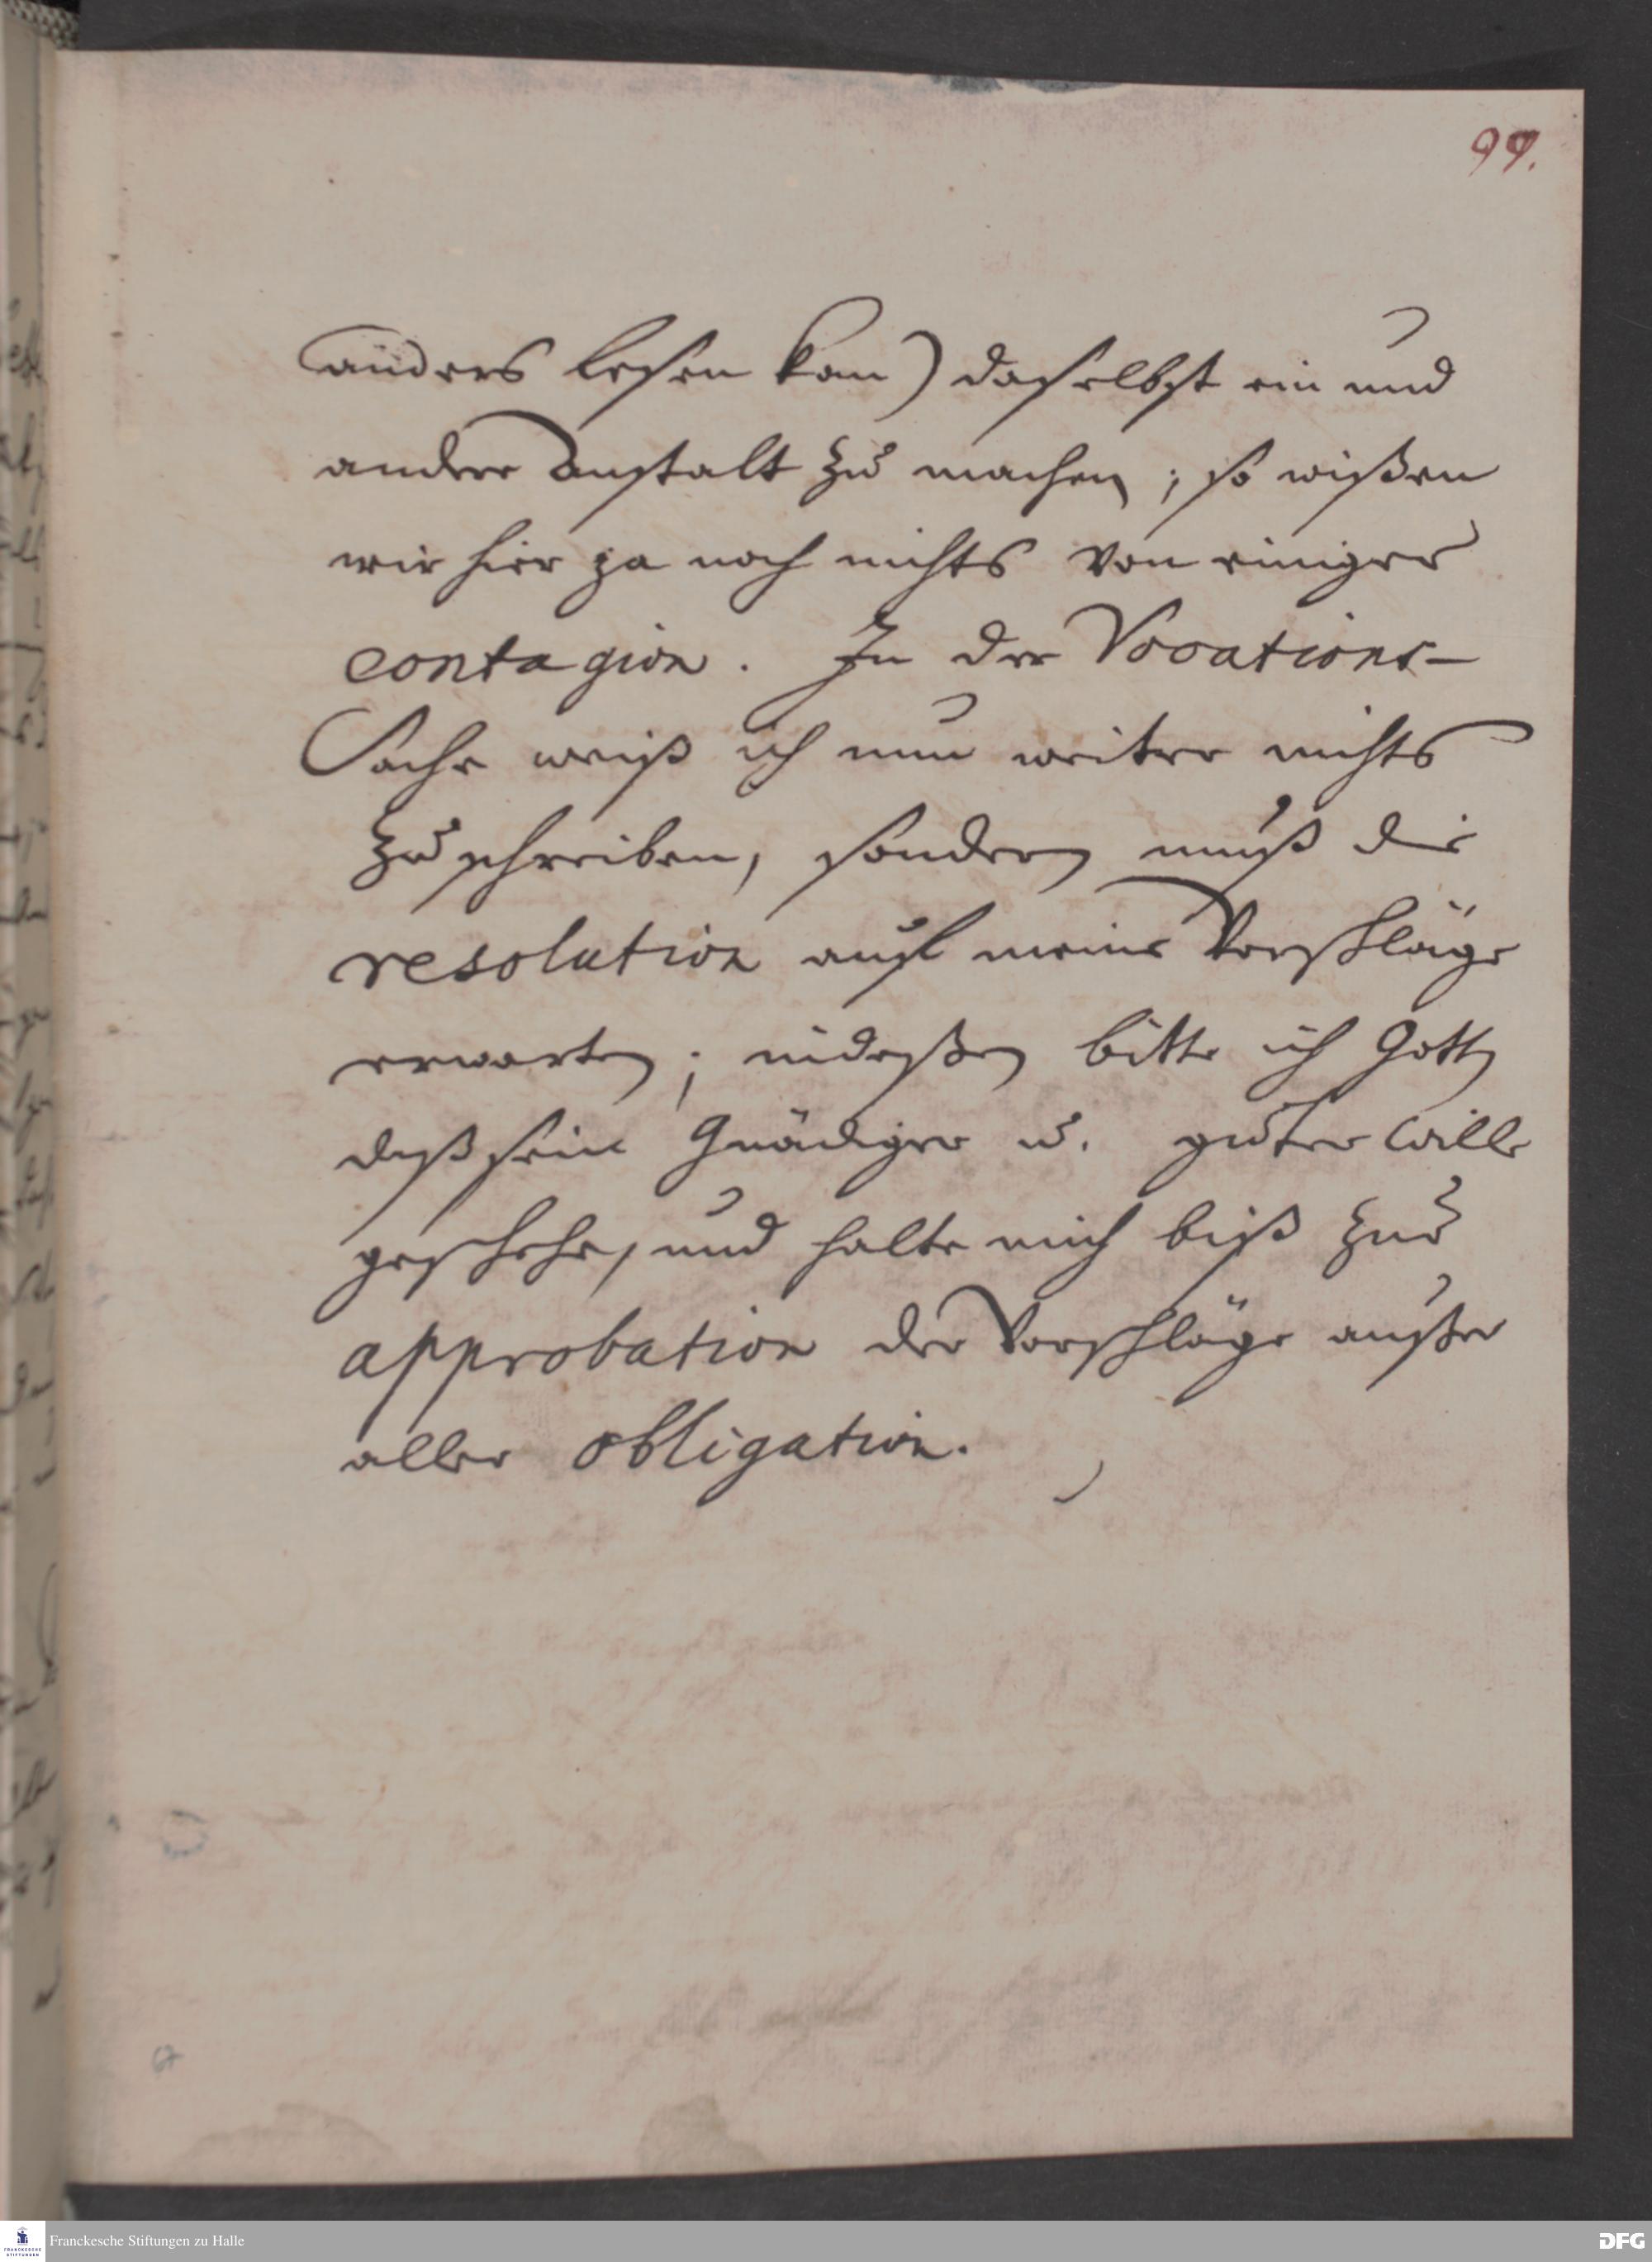 99.
anders lesen kan) daselbst ein und
andere Anstalt zu machen; so wißen
wir hier ja noch nichts von einiger
contagion. In der Vocations-
Sache weiß ich nun weiter nichts
zu schreiben, sondern muß die
resolution auf meine Vorschläge
erwarten; indeßen bitte ich Gott
deß sein Gnädiger u. guter Wille
geschehe, und halte mich biß zur
approbation der Vorschläge außer
aller obligation.
Franckesche Stiftungen zu Halle
FRANCKESCHE
STIFTUNGEN
DFG